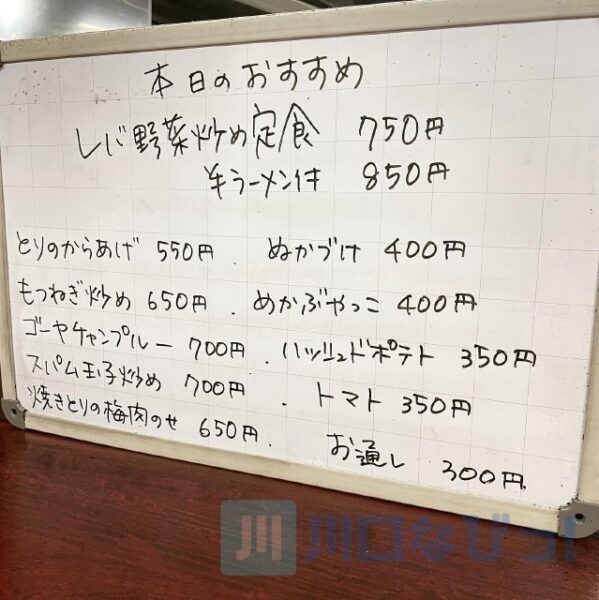 本日のおすすめ
レバ野菜炒め定食 750円
半ラーメン付 850円
とりのからあげ 550円 . ぬかづけ 400円
もつねぎ炒め 650円 . めかぶやっこ 400円
ゴーヤチャンプルー 700円 . ハッシュドポテト 350円
スパム玉子炒め 700円 . トマト 350円
焼きとりの梅肉のせ 650円 .
お通し 300円
川 川口なびっ!